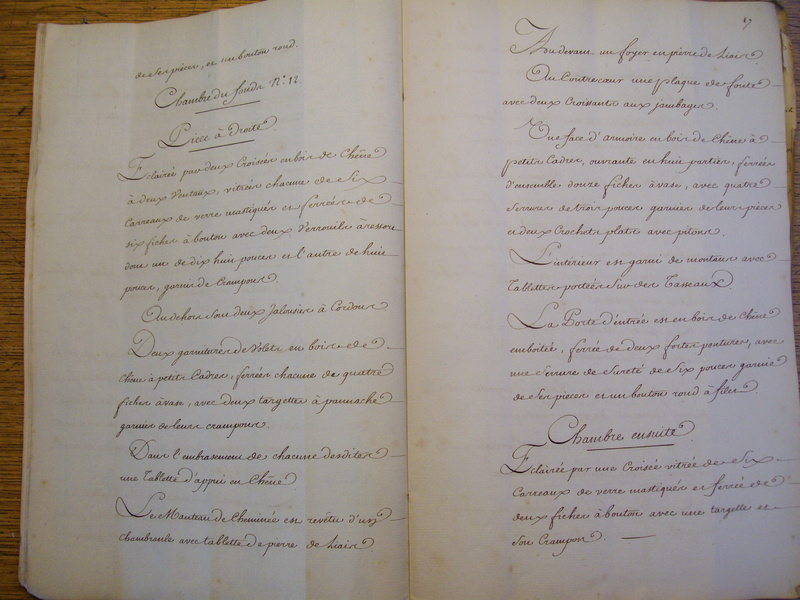 de ses pieces, et un bouton rond.
Chambre du fonds N.º 12
Piece à Droite
Eclairée par deux Croisées en bois de Chêne
à deux Ventaux, vitrées chacune de Six
Carreaux de verre mastiqués et ferrées de
six fiches à bouton avec deux Verrouils à ressort
dont un de dix huit pouces et l'autre de huit
pouces, garnis de Crampons.
Au dehors sont deux Jalousies à Cordons
Deux garnitures de Volets en bois de
Chêne à petits Cadres, ferrées chacune de quatre
fiches à vase, avec deux targettes à pannache
garnies de leurs crampons.
Dans l'embrasement de chacune desdites
une Tablette d'appui en Chêne
Le Manteau de Cheminée est revêtu d'un
chambranle avec tablette de pierre de Liais.
17
Au devant un foyer en pierre de Liais
Au Contrecœur une plaque de fonte
avec deux Croissants aux jambages.
Une face d'armoire en bois de Chêne à
petits Cadres, ouvrante en huit parties, ferrées
d'ensemble douze fiches à vase, avec quatre
Serrures de trois pouces garnies de leurs pieces
et deux Crochets plats avec pitons.
L'intérieur est garni de montans avec
Tablettes portées sur des Tasseaux
La Porte d'entrée est en bois de Chêne
emboitée, ferrée de deux fortes pentures, avec
une Serrure de Sureté de six pouces garnie
de ses pieces et un bouton rond à filets
Chambre ensuite
Eclairée par une Croisée vitrée de Six
Carreaux de verre mastiqués et ferrée de
deux fiches à bouton avec une targette et
son Crampon.